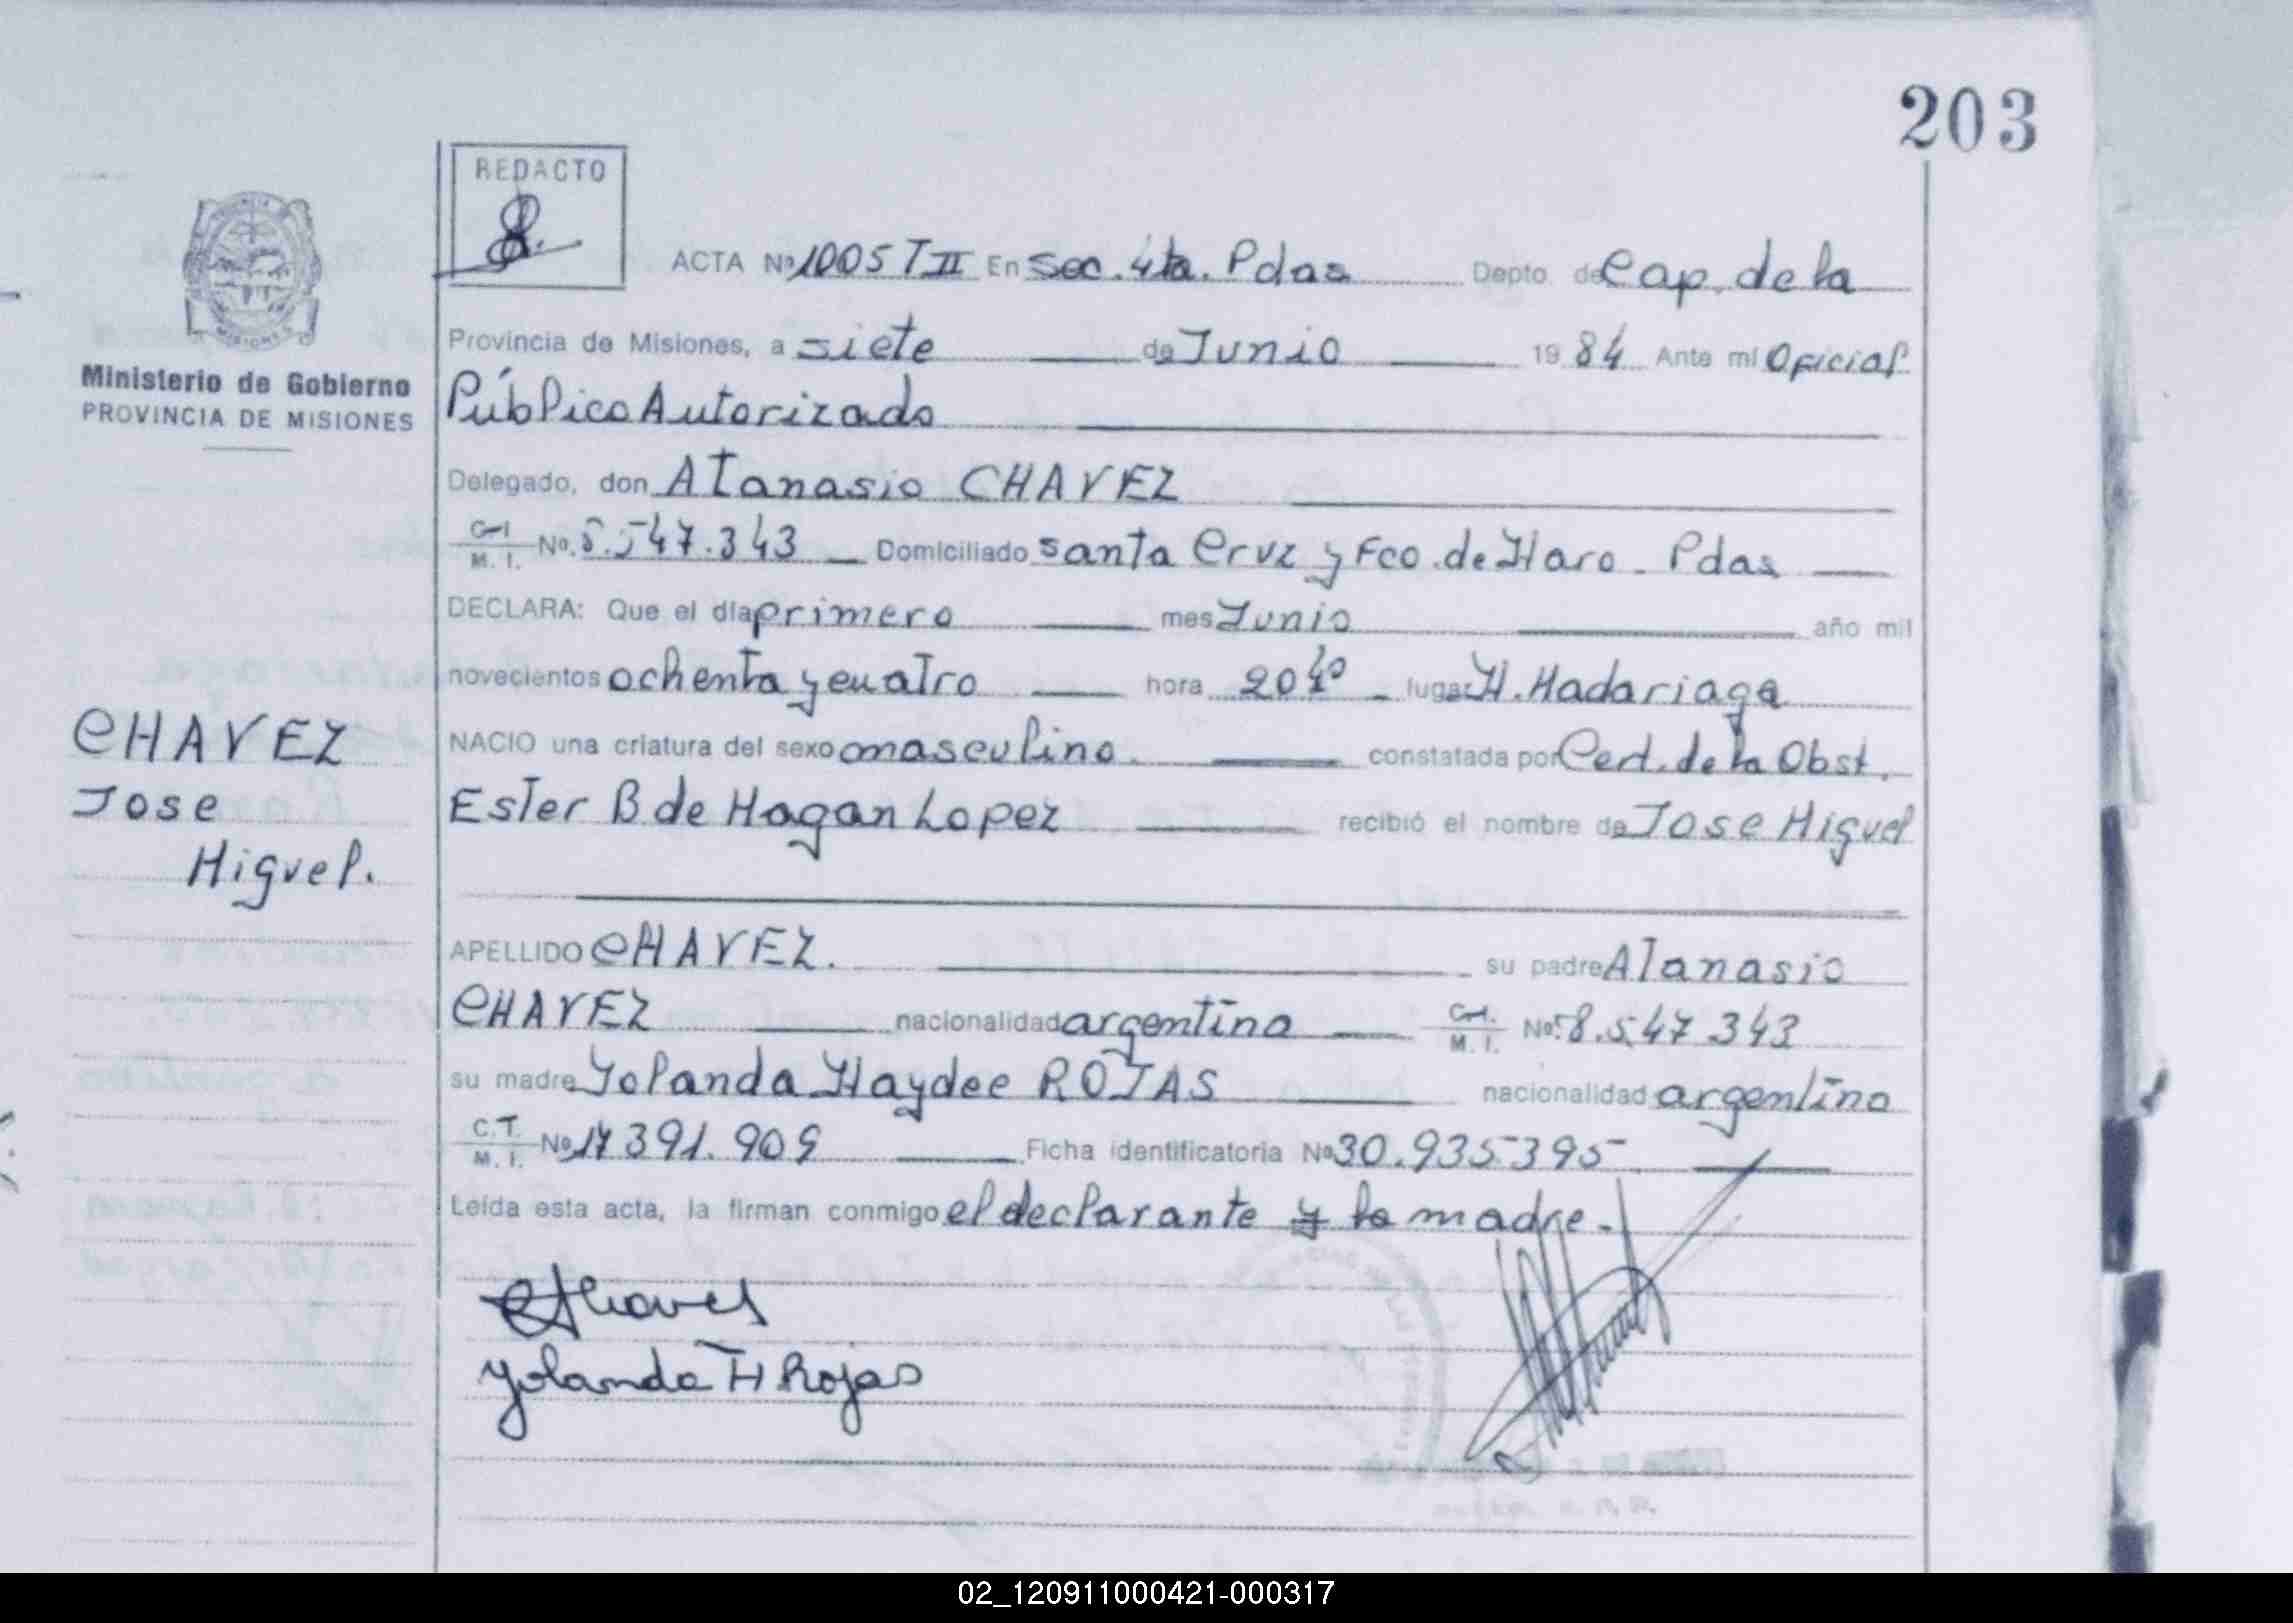 203
REDACTO
ACTA Nº 1005 T II En Sec. 4ta. Pdas Depto. de Cap. de la
Provincia de Misiones, a siete de Junio 1984 Ante mí Oficial
Ministerio de Gobierno
PROVINCIA DE MISIONES
Público Autorizado
Delegado, don Atanasio CHAVEZ
C.I. M. I. No. 8.547.343 Domiciliado Santa Cruz y Fco. de Haro - Pdas
DECLARA: Que el día primero mes Junio año mil
novecientos ochenta y cuatro hora 20 40 lugar H. Madariaga
CHAVEZ
Jose
Miguel.
NACIO una criatura del sexo masculino. constatada por Cert. de la Obst.
Ester B de Hagan Lopez recibió el nombre de Jose Miguel
APELLIDO CHAVEZ. su padre Atanasio
CHAVEZ nacionalidad argentina C.I. M. I. No. 8.547.343
su madre Yolanda Haydee ROJAS nacionalidad argentina
C.I. M. I. No. 17.391.909 Ficha identificatoria Nº 30.935395
Leída esta acta, la firman conmigo el declarante y la madre.
Yolanda H Rojas
02_120911000421-000317